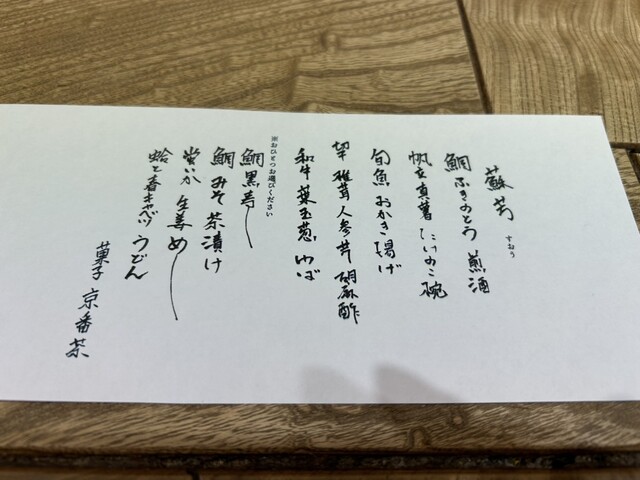 蘇芳
すおう
鯛 ふきのとう 煎酒
帆立真薯 たけのこ 椀
旬魚 おかき揚げ
椎茸 人参 芹 胡麻酢
和牛 葉玉葱 ゆば
※おひとつお選びください
鯛 黒寿し
鯛 みそ 茶漬け
蛍いか 生姜 めし
蛤と春キャベツ うどん
菓子 京番茶